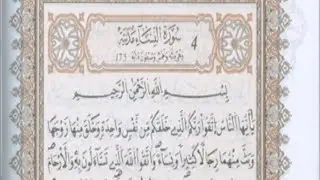 4
سورة النساء مدنية
بسم الله الرحمن الرحيم
يأيها الناس اتقوا ربكم الذي خلقكم من نفس واحدة وخلق منها زوجها
وبث منهما رجالا كثيرا ونساء واتقوا الله الذي تساءلون به والأرحام